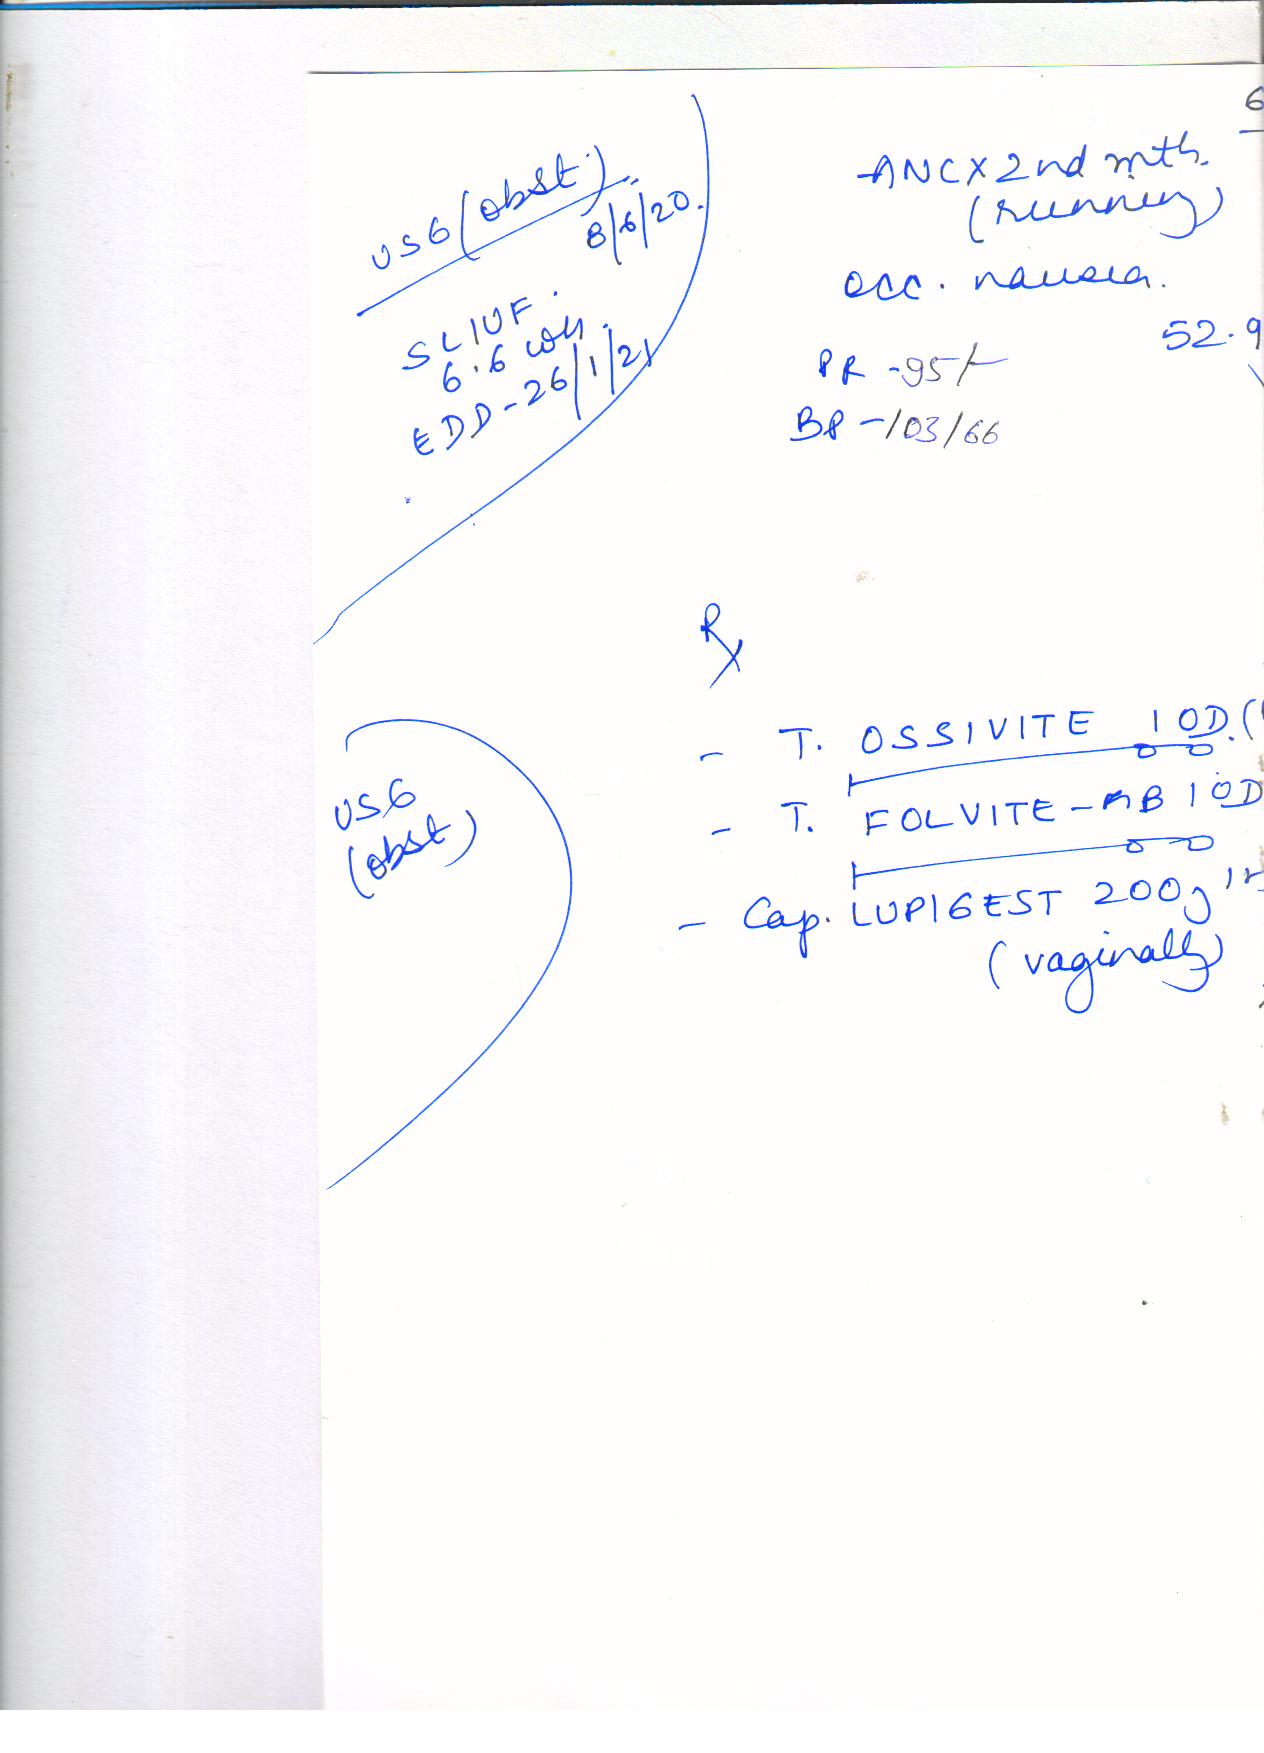 USG (obst).
8/6/20.
SLIUF.
6.6 wks.
EDD - 26/1/21
6
ANC X 2nd mth.
(running)
occ. nausea.
52.9
PR - 95/-
BP - 103/66
Rx
- T. OSSIVITE 1 OD. (
- T. FOLVITE-MB 1 OD
- Cap. LUPIGEST 200g 1
(vaginally)
USG
(obst)